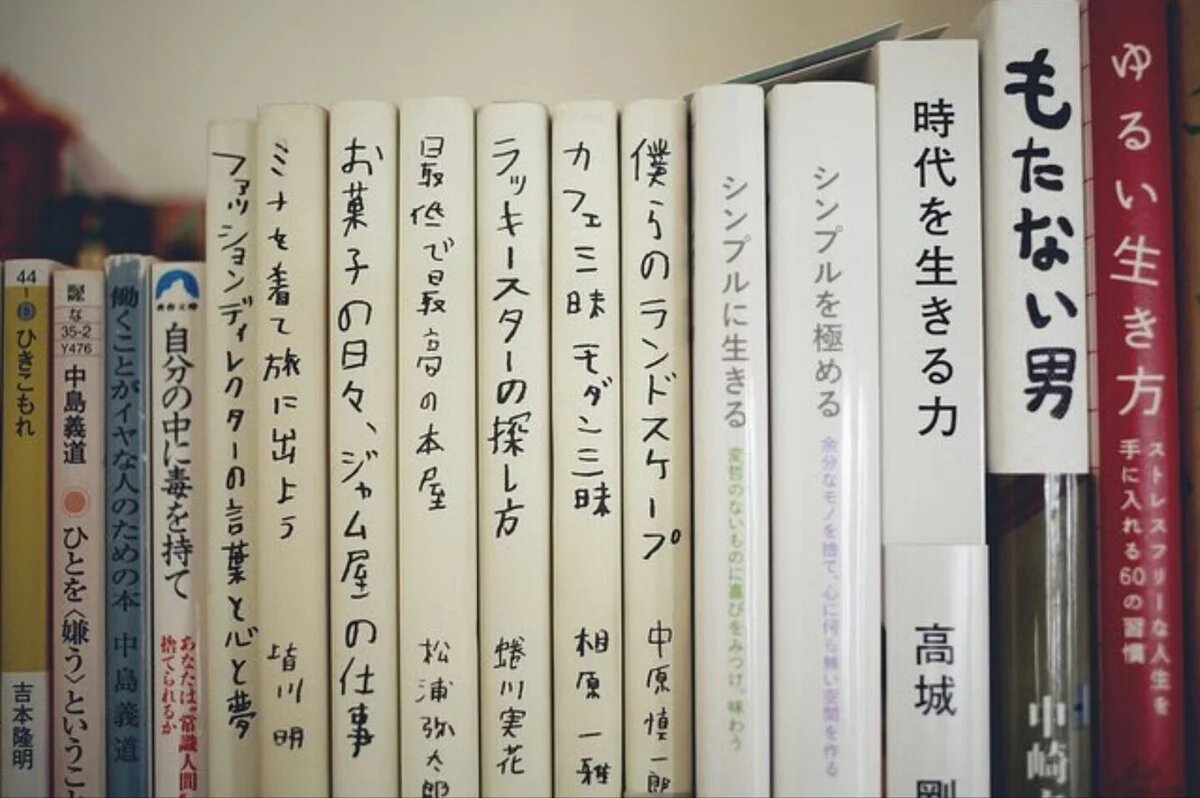 44
ひきこもれ
吉本隆明
な
35-2
Y476
中島義道
ひとを〈嫌う〉ということ
働くことがイヤな人のための本
中島義道
青春文庫
自分の中に毒を持て
あなたは“常識人間”
捨てられるか
ファッションディレクターの言葉と心と夢
ミナを着て旅に出よう
皆川明
お菓子の日々、ジャム屋の仕事
最低で最高の本屋
松浦弥太郎
ラッキースターの探し方
蜷川実花
カフェ三昧モダン三昧
相原一雅
僕らのランドスケープ
中原慎一郎
シンプルに生きる
変哲のないものに喜びをみつけ、味わう
シンプルを極める
余分なモノを捨て、心に何も無い空間を作る
時代を生きる力
高城 剛
もたない男
中崎
ゆるい生き方
ストレスフリーな人生を
手に入れる60の習慣